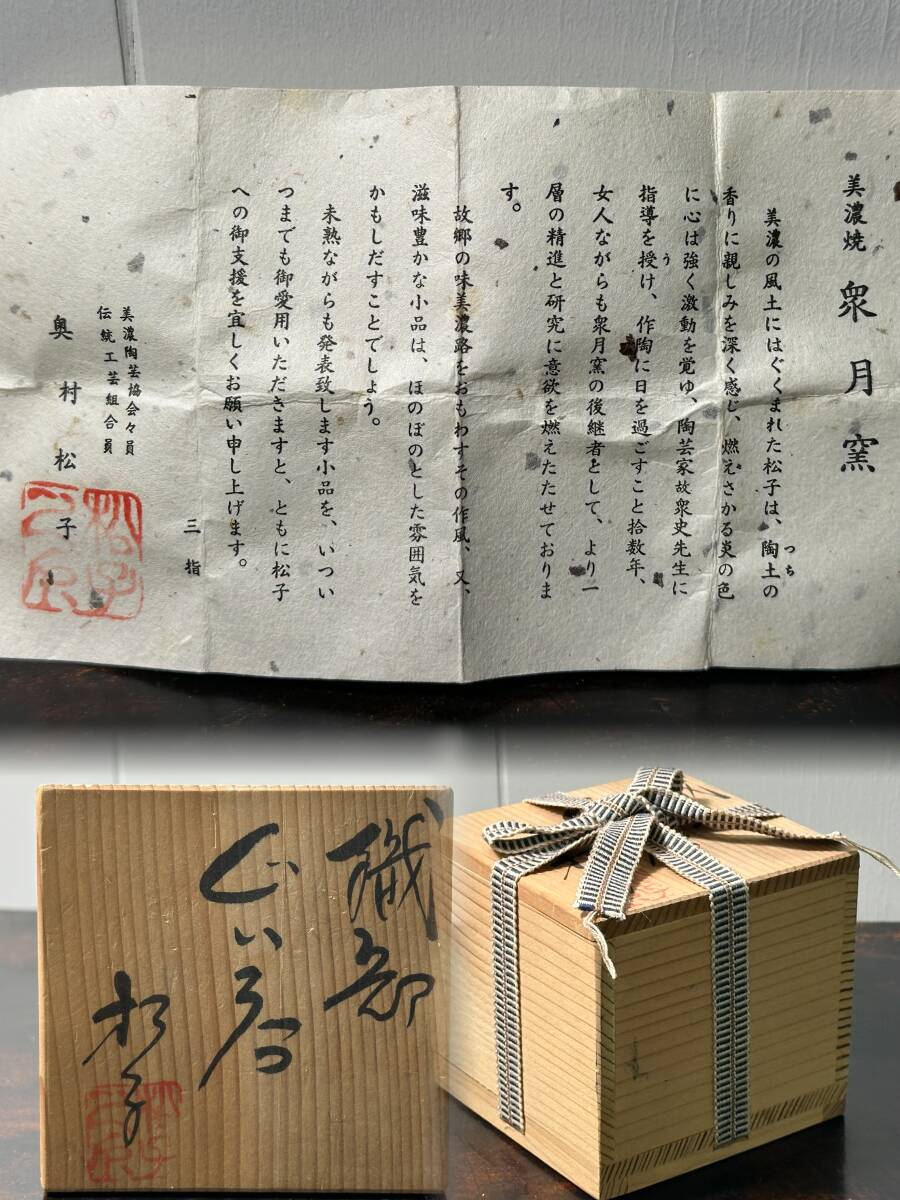 美濃焼 衆月窯
美濃の風土にはぐくまれた松子は、陶土の
つち
香りに親しみを深く感じ、燃えさかる炎の色
に心は強く激動を覚ゆ、陶芸家故衆史先生に
指導を授け、作陶に日を過ごすこと拾数年、
う
女人ながらも衆月窯の後継者として、より一
層の精進と研究に意欲を燃えたたせておりま
す。
故郷の味美濃路をおもわすその作風、又、
滋味豊かな小品は、ほのぼのとした雰囲気を
かもしだすことでしょう。
未熟ながらも発表致します小品を、いつい
つまでも御愛用いただきますと、ともに松子
への御支援を宜しくお願い申し上げます。
三指
美濃陶芸協会々員
伝統工芸組合員
奥村松子
織部
ぐい呑
松子